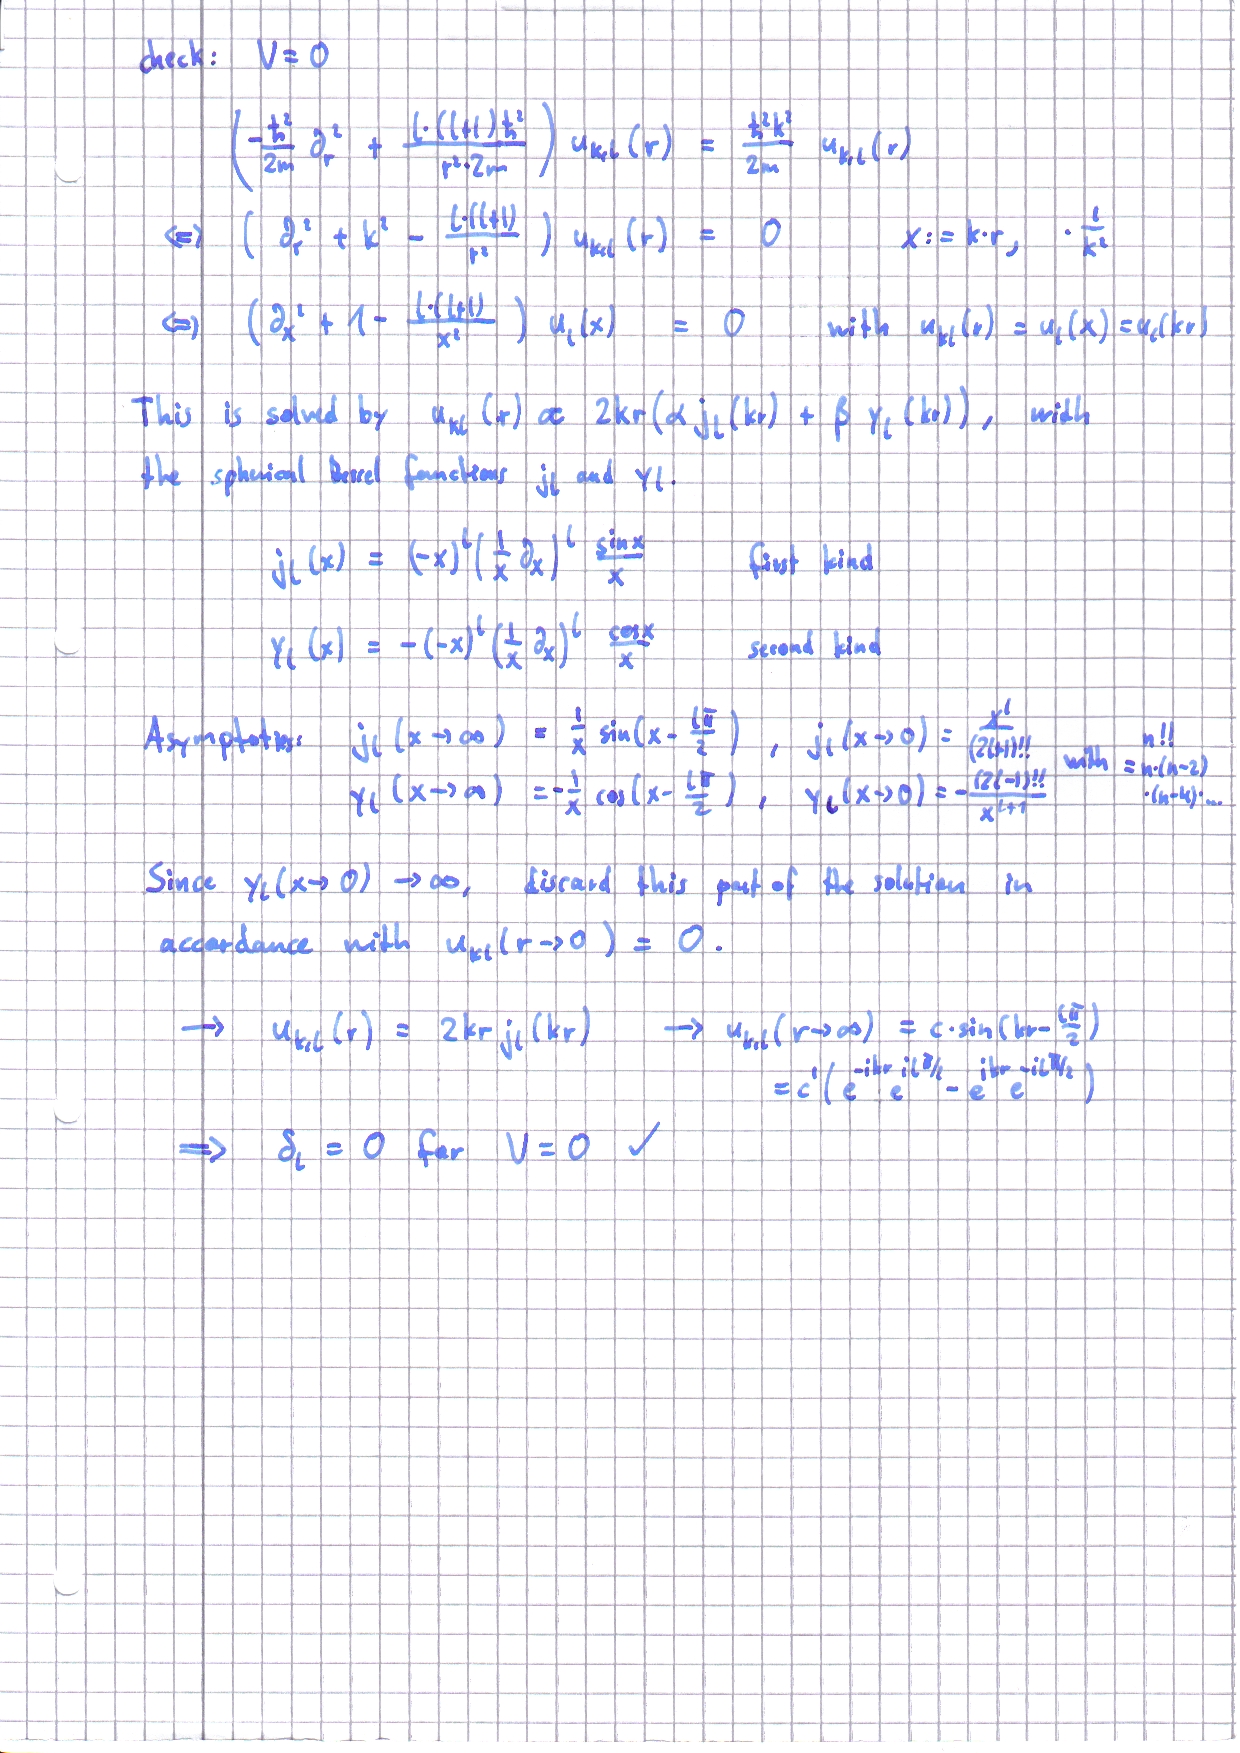 check: V = 0
(-ℏ²/2m ∂_r² + l·(l+1)ℏ²/r²·2m) u_{k,l}(r) = ℏ²k²/2m u_{k,l}(r)
⇔ (∂_r² + k² - l·(l+1)/r²) u_{k,l}(r) = 0 x := k·r, · 1/k²
⇔ (∂_x² + 1 - l·(l+1)/x²) u_l(x) = 0 with u_{kl}(r) = u_l(x) = u_l(kr)
This is solved by u_{kl}(r) ∝ 2kr(α j_l(kr) + β y_l(kr)), with
the spherical Bessel functions j_l and y_l.
j_l(x) = (-x)^l (1/x ∂_x)^l sinx/x first kind
y_l(x) = -(-x)^l (1/x ∂_x)^l cosx/x second kind
Asymptotics: j_l(x→∞) = 1/x sin(x - lπ/2), j_l(x→0) = x^l/(2l+1)!! with n!! = n·(n-2)·(n-4)·...
y_l(x→∞) = -1/x cos(x - lπ/2), y_l(x→0) = -(2l-1)!!/x^{l+1}
Since y_l(x→0) → ∞, discard this part of the solution in
accordance with u_{kl}(r→0) = 0.
→ u_{k,l}(r) = 2kr j_l(kr) → u_{k,l}(r→∞) = c·sin(kr - lπ/2)
= c'(e^{-ikr} e^{ilπ/2} - e^{ikr} e^{-ilπ/2})
⇒ δ_l = 0 for V = 0 ✓